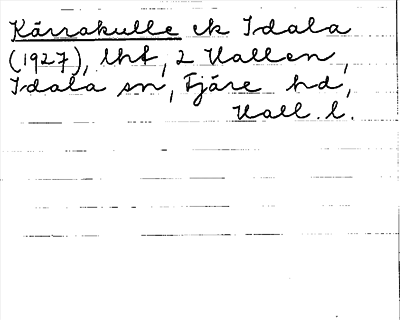 Kärrakulle ek Idala
(1927), lht, 2 Vallen,
Idala sn, Fjäre hd,
Hall. l.